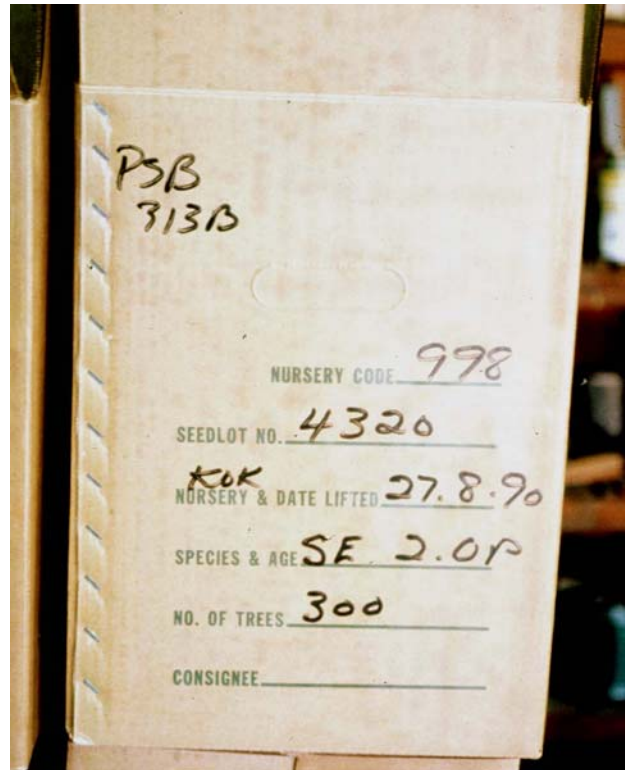 PSB
313B
NURSERY CODE 998
SEEDLOT NO. 4320
KOK
NURSERY & DATE LIFTED 27.8.90
SPECIES & AGE SE 2.0P
NO. OF TREES 300
CONSIGNEE